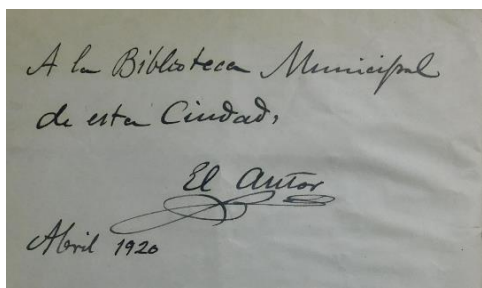 A la Biblioteca Municipal
de esta Ciudad,
El autor
Abril 1920